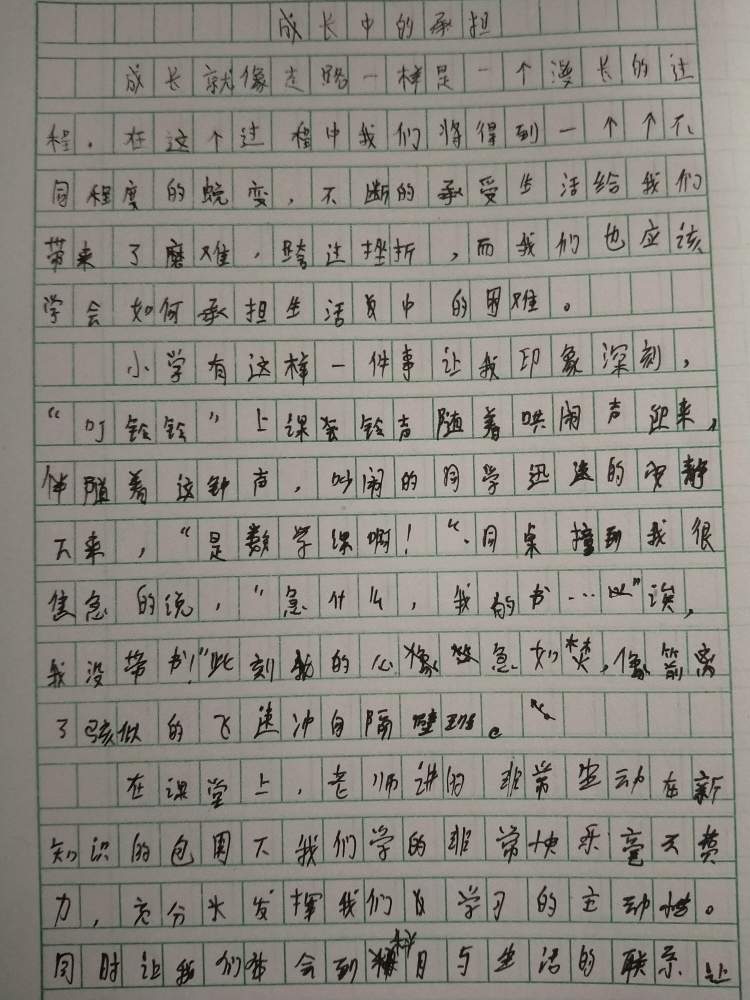 成长中的承担
成长就像走路一样是一个漫长的过
程。在这个过程中我们将得到一个个不
同程度的蜕变，不断的承受生活给我们
带来了磨难，跨过挫折，而我们也应该
学会如何承担生活中的困难。
小学有这样一件事让我印象深刻，
“叮铃铃”上课铃声随着哄闹声迎来，
伴随着这钟声，吵闹的同学迅速的安静
下来，“是数学课啊！“同桌撞到我很
焦急的说，“急什么，我的书……”“诶，
我没带书！”此刻我的心焦急如焚，像箭离
了弦似的飞速冲向隔壁班。
在课堂上，老师讲的非常生动在新
知识的包围下我们学的非常快乐毫不费
力，充分发挥我们学习的主动性。
同时让我们体会到科目与生活的联系让